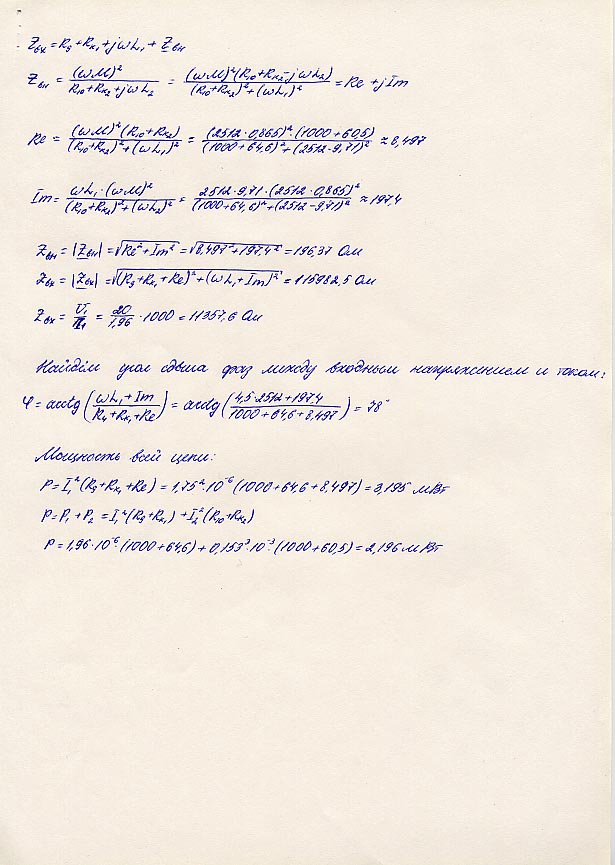 Zвх = R9 + Rк1 + jωL1 + Zвн
Zвн = (ωM)² / (R10 + Rк2 + jωL2) = (ωM)²(R10 + Rк2 - jωL2) / ((R10 + Rк2)² + (ωL1)²) = Re + jIm
Re = (ωM)²(R10 + Rк2) / ((R10 + Rк2)² + (ωL1)²) = (2512·0,865)²·(1000 + 60,5) / ((1000 + 64,6)² + (2512·9,71)²) ≈ 8,497
Im = ωL1·(ωM)² / ((R10 + Rк2)² + (ωL2)²) = 2512·9,71·(2512·0,865)² / ((1000 + 64,6)² + (2512-9,71)²) ≈ 197,4
Zвн = |Zвн| = √(Re² + Im²) = √(8,497² + 197,4²) = 196,37 Ом
Zвх = |Zвх| = √((R9 + Rк1 + Re)² + (ωL1 + Im)²) = 115982,5 Ом
Zвх = U1 / I1 = 20 / 1,96 · 1000 = 11357,6 Ом
Найдём угол сдвига фаз между входным напряжением и током:
φ = arctg((ωL1 + Im) / (R9 + Rк1 + Re)) = arctg((4,5·2512 + 197,4) / (1000 + 64,6 + 8,497)) = 78°
Мощность всей цепи:
P = I1²(R9 + Rк1 + Re) = 1,75²·10⁻⁶(1000 + 64,6 + 8,497) = 3,195 мВт
P = P1 + P2 = I1²(R9 + Rк1) + I2²(R10 + Rк2)
P = 1,96·10⁻⁶·(1000 + 64,6) + 0,153³·10⁻³(1000 + 60,5) = 2,196 мВт